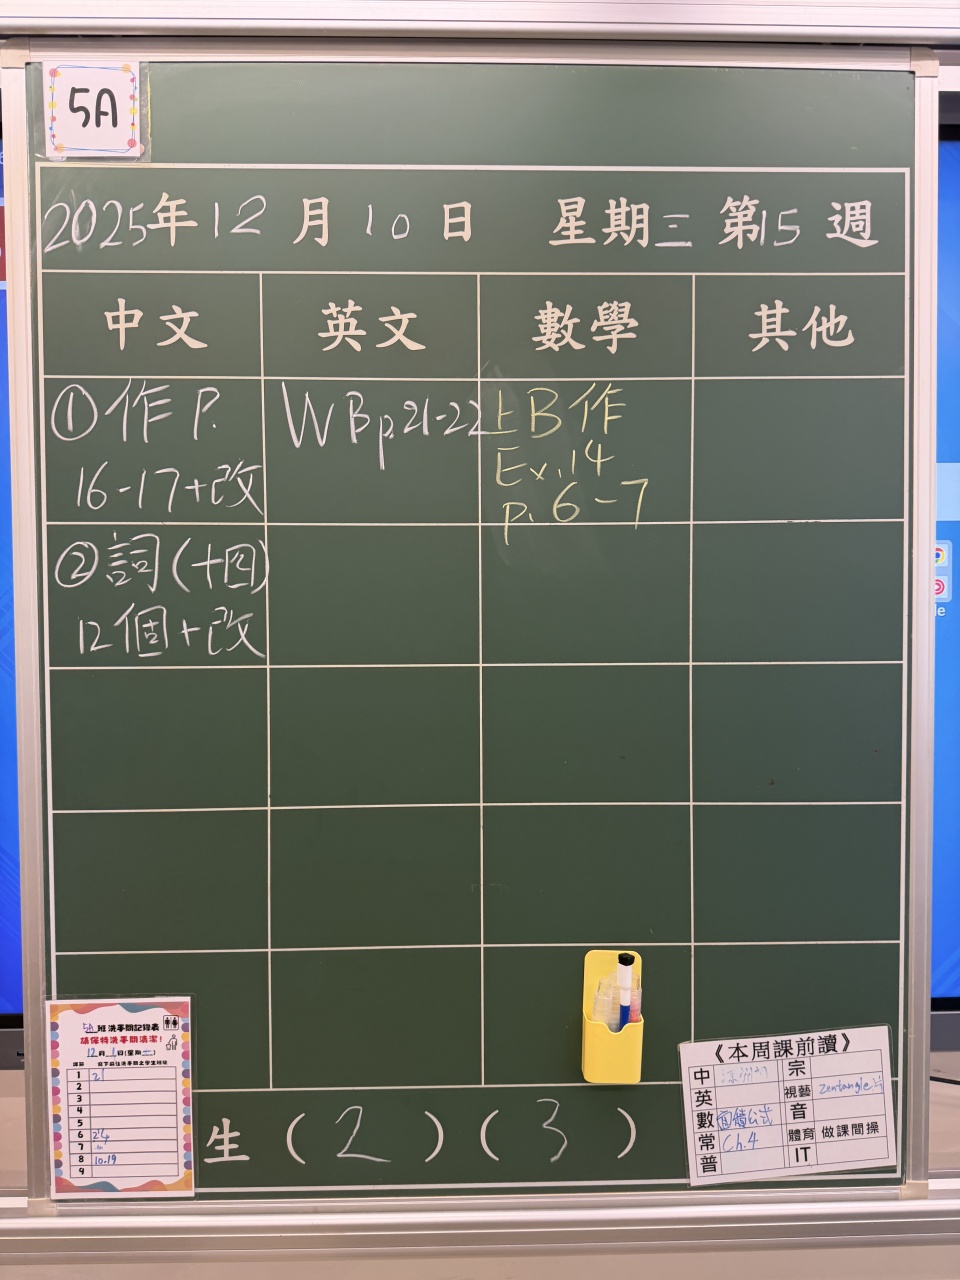 5A
2025年12月10日 星期三 第15週
中文 英文 數學 其他
①作P.
16-17+改
WBp.21-22
上B作
Ex.14
p.6-7
②詞(十四)
12個+改
生(2)(3)
5A班洗手間記錄表
請保持洗手間清潔！
12月1日(星期一)
課節
1 21
2
3
4
5
6 24
7
8 10.19
9
《本周課前讀》
中
英
數
常 Ch.4
普
宗
視藝 zentangle
音
體育 做課間操
IT